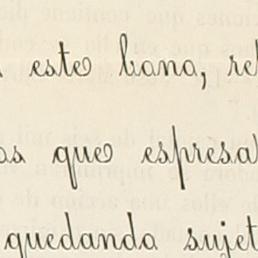 este bono, re
as que espresa
quedando sujet